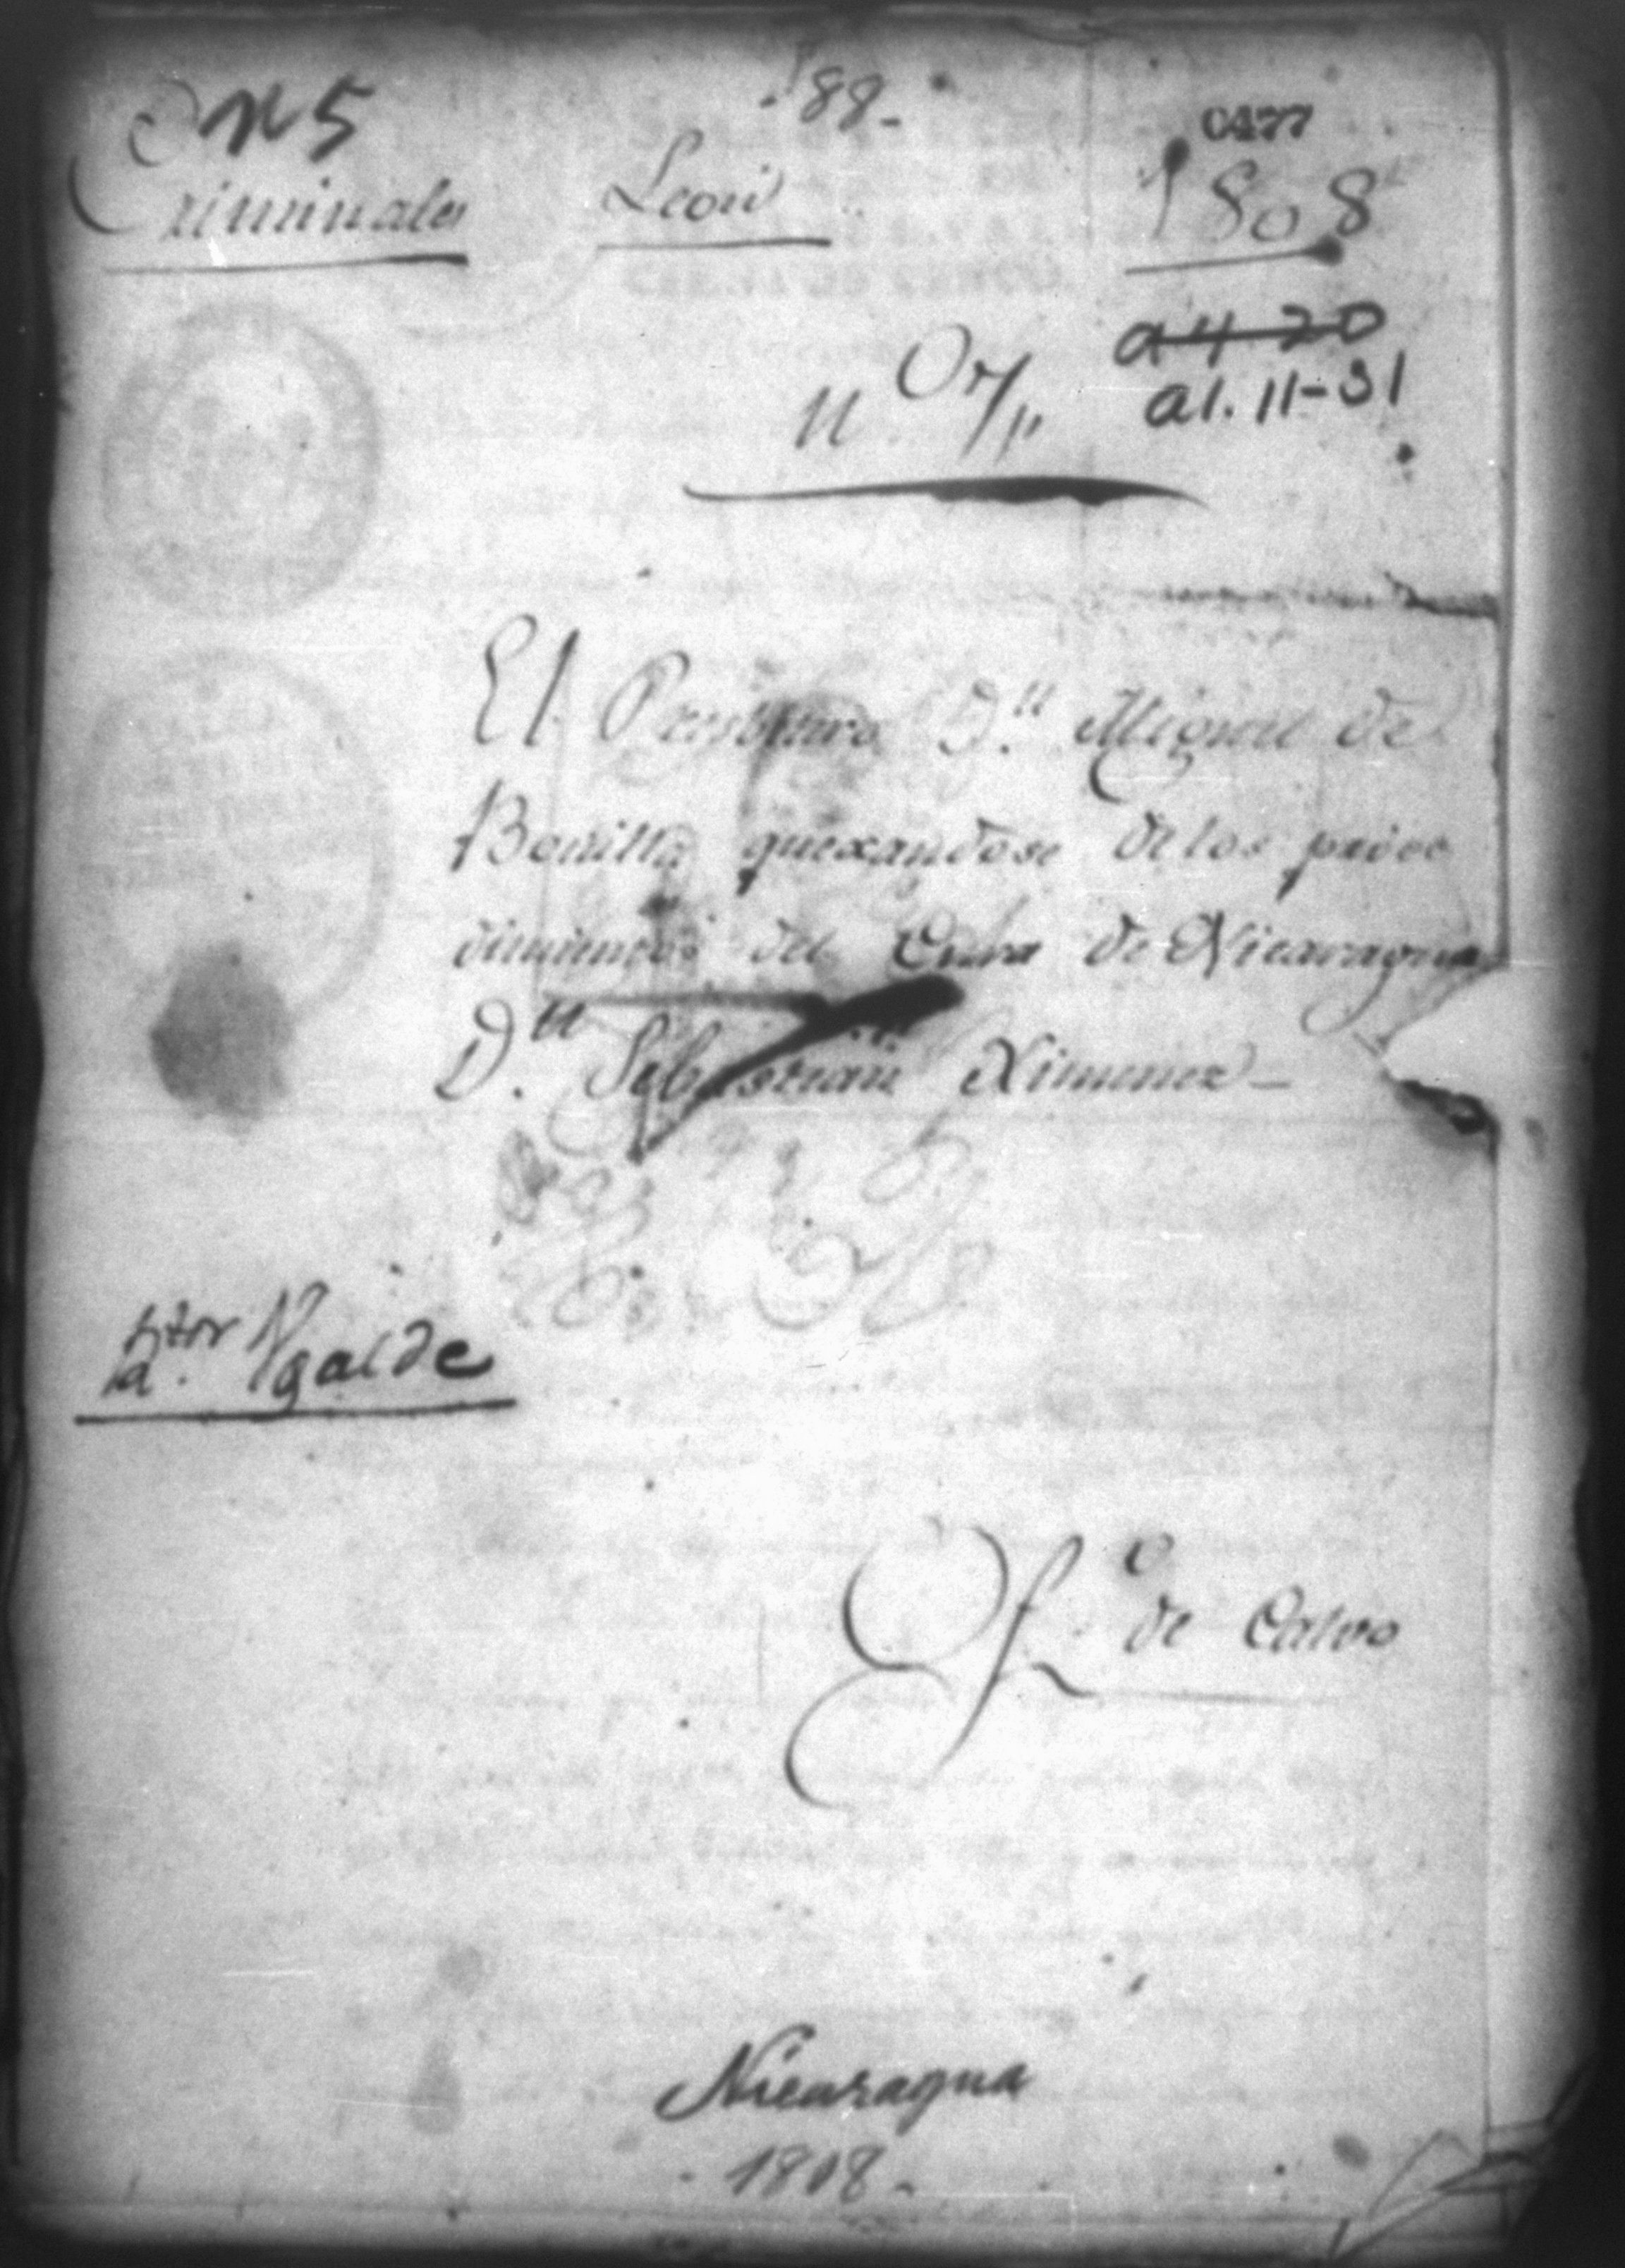 N 5
88-
0477
Criminales Leon 1808
a4 20
a1. 11-31
El Presbitero D.n Miguel de
Bonilla quexandose de los proce
dimientos del Cura de Nicaragua
D.n Sebastian Ximenez-
Ugalde
de Calvo
Nicaragua
-1808-